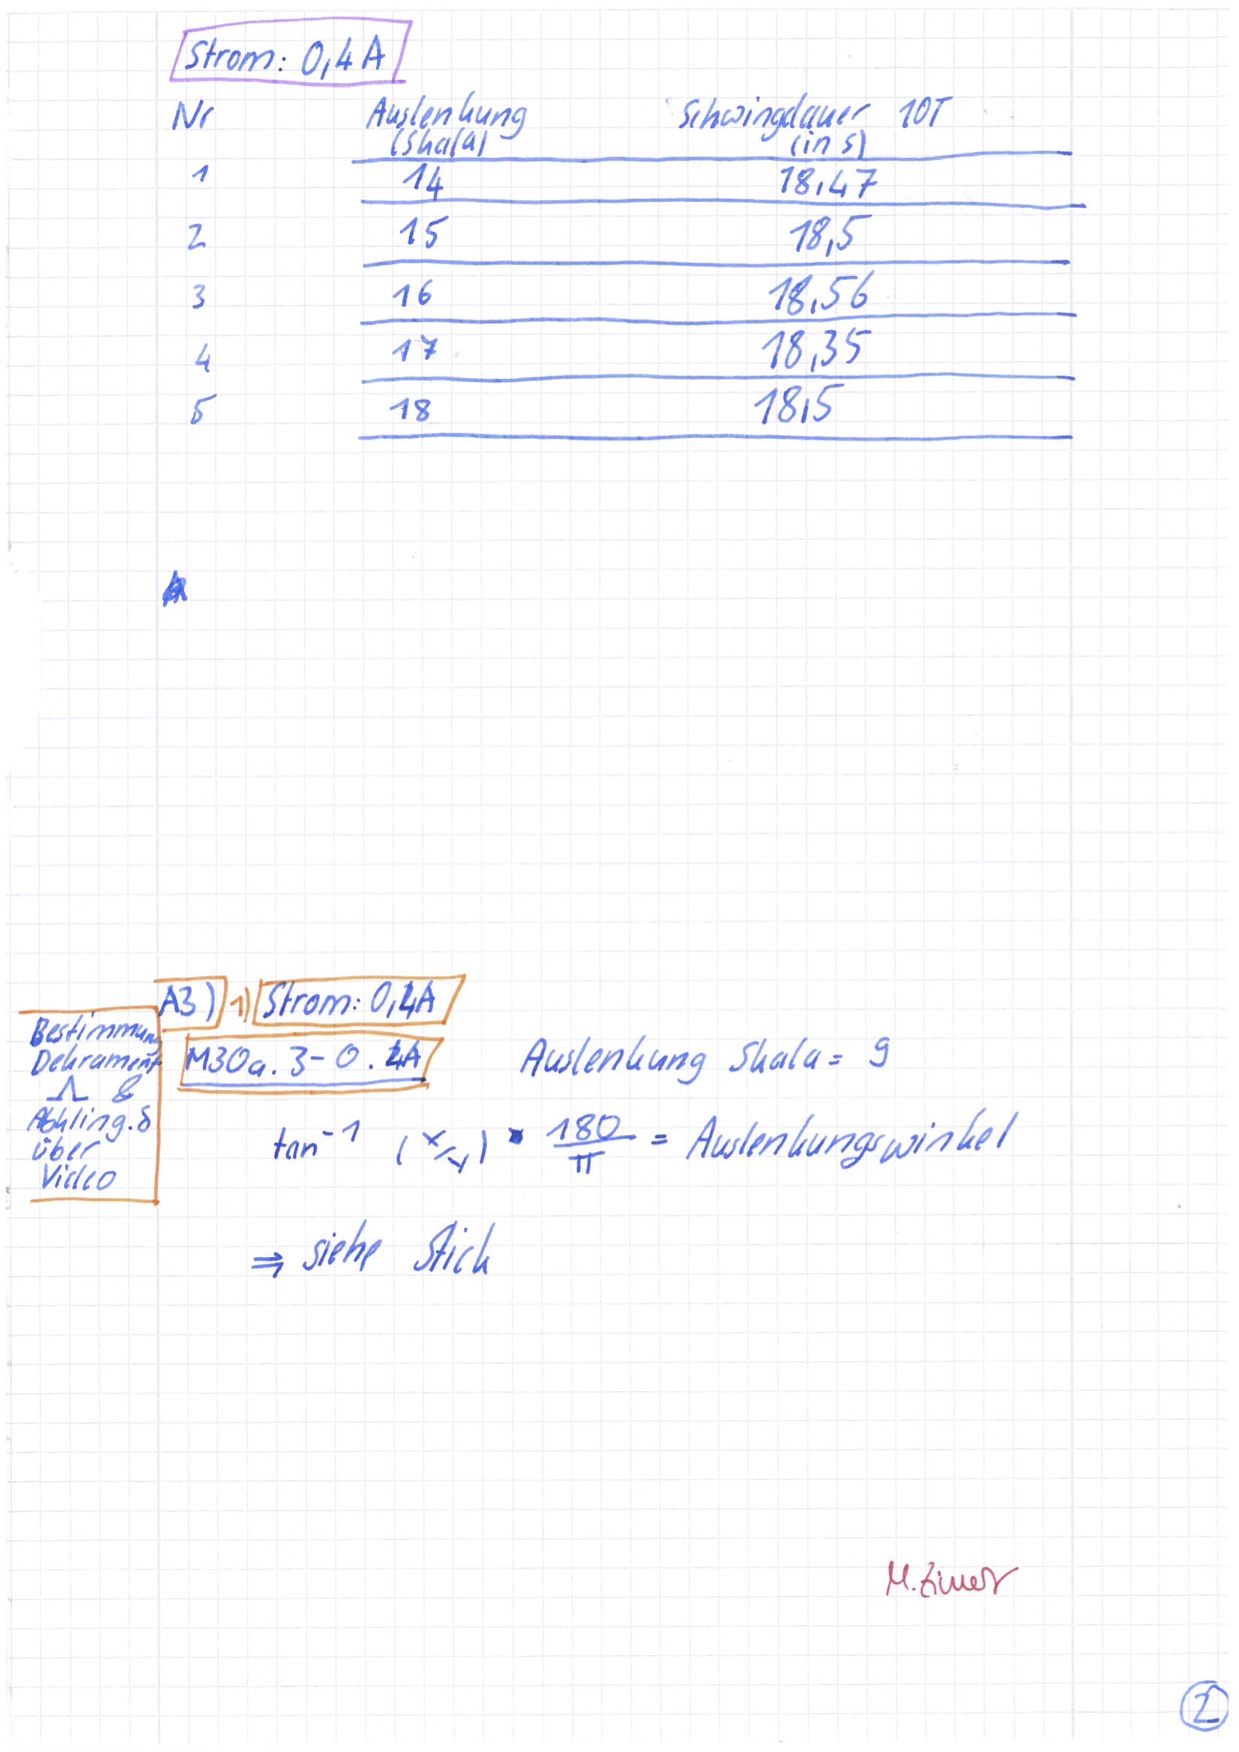 Strom: 0,4 A
Nr Auslenkung (Skala) Schwingdauer 10T (in s)
1 14 18,47
2 15 18,5
3 16 18,56
4 17 18,35
5 18 18,5
A3) 1) Strom: 0,4A
Bestimmung
Dekrament
Λ &
Abkling. δ
über
Video
M30a. 3-0.4A Auslenkung Skala = 9
tan⁻¹ (x/y) • 180/π = Auslenkungswinkel
⇒ siehe Stick
2